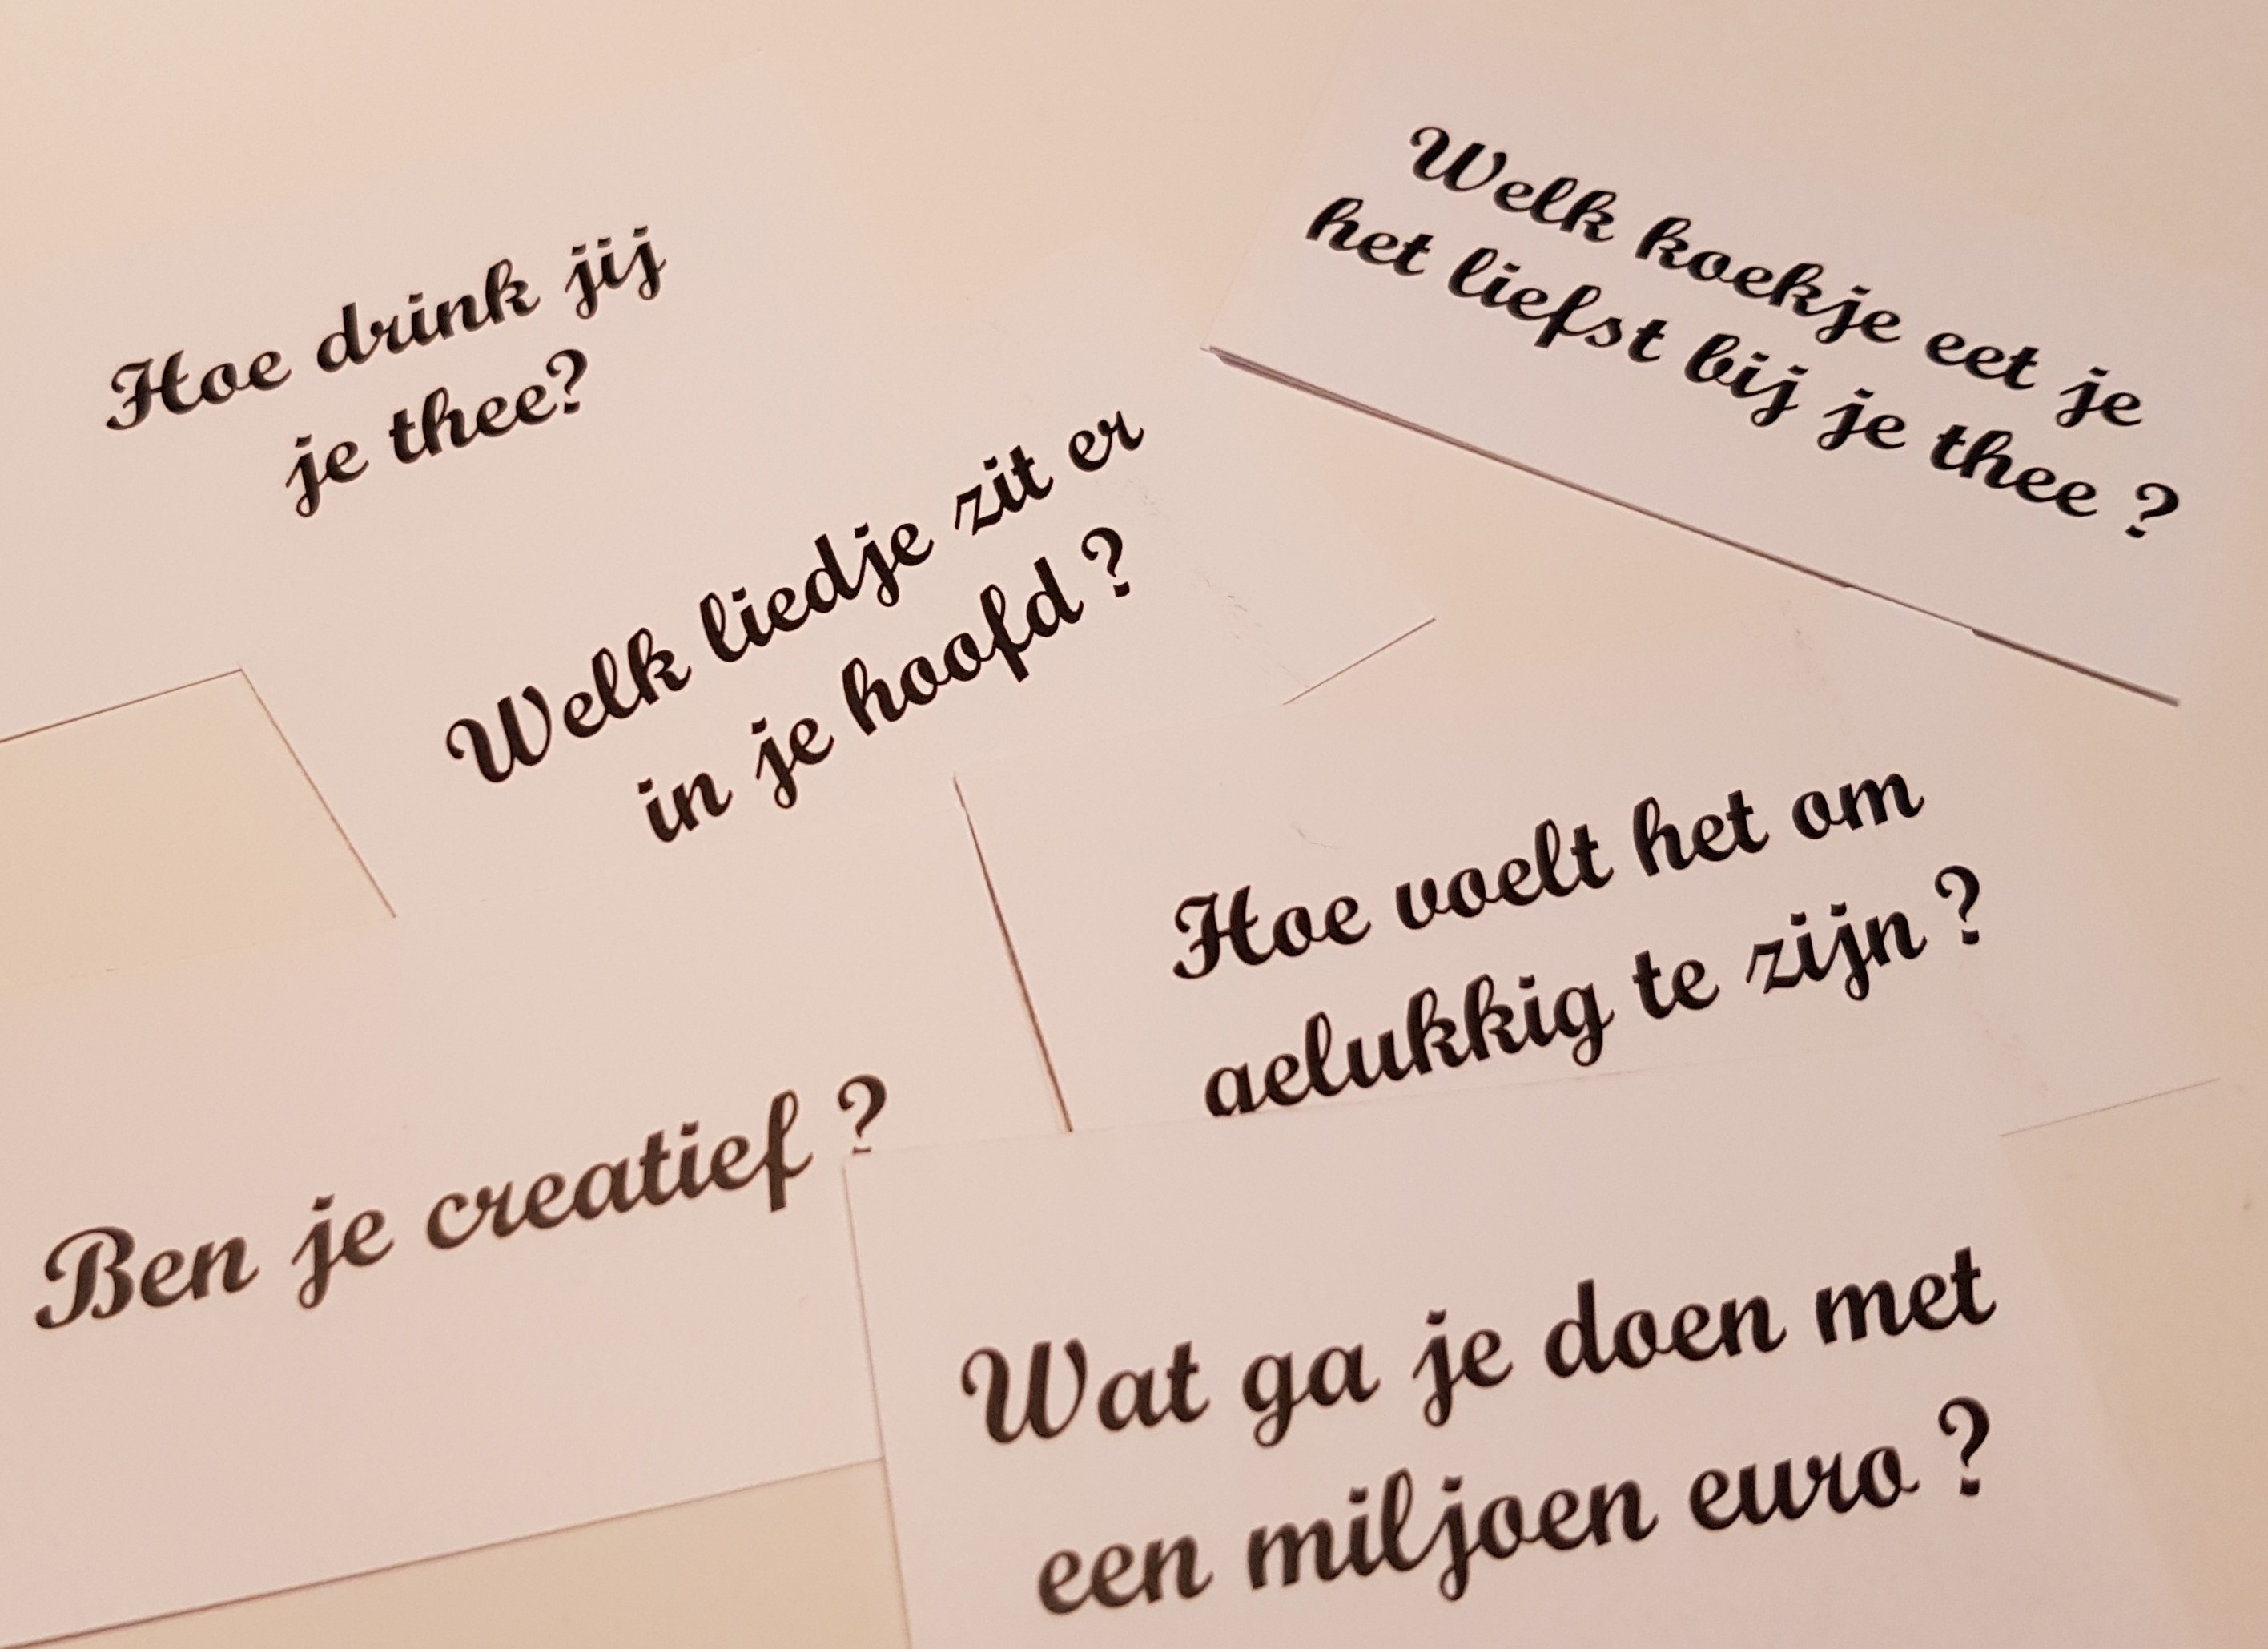 Hoe drink jij
je thee?
Welk koekje eet je
het liefst bij je thee ?
Welk liedje zit er
in je hoofd ?
Hoe voelt het om
gelukkig te zijn ?
Ben je creatief ?
Wat ga je doen met
een miljoen euro ?